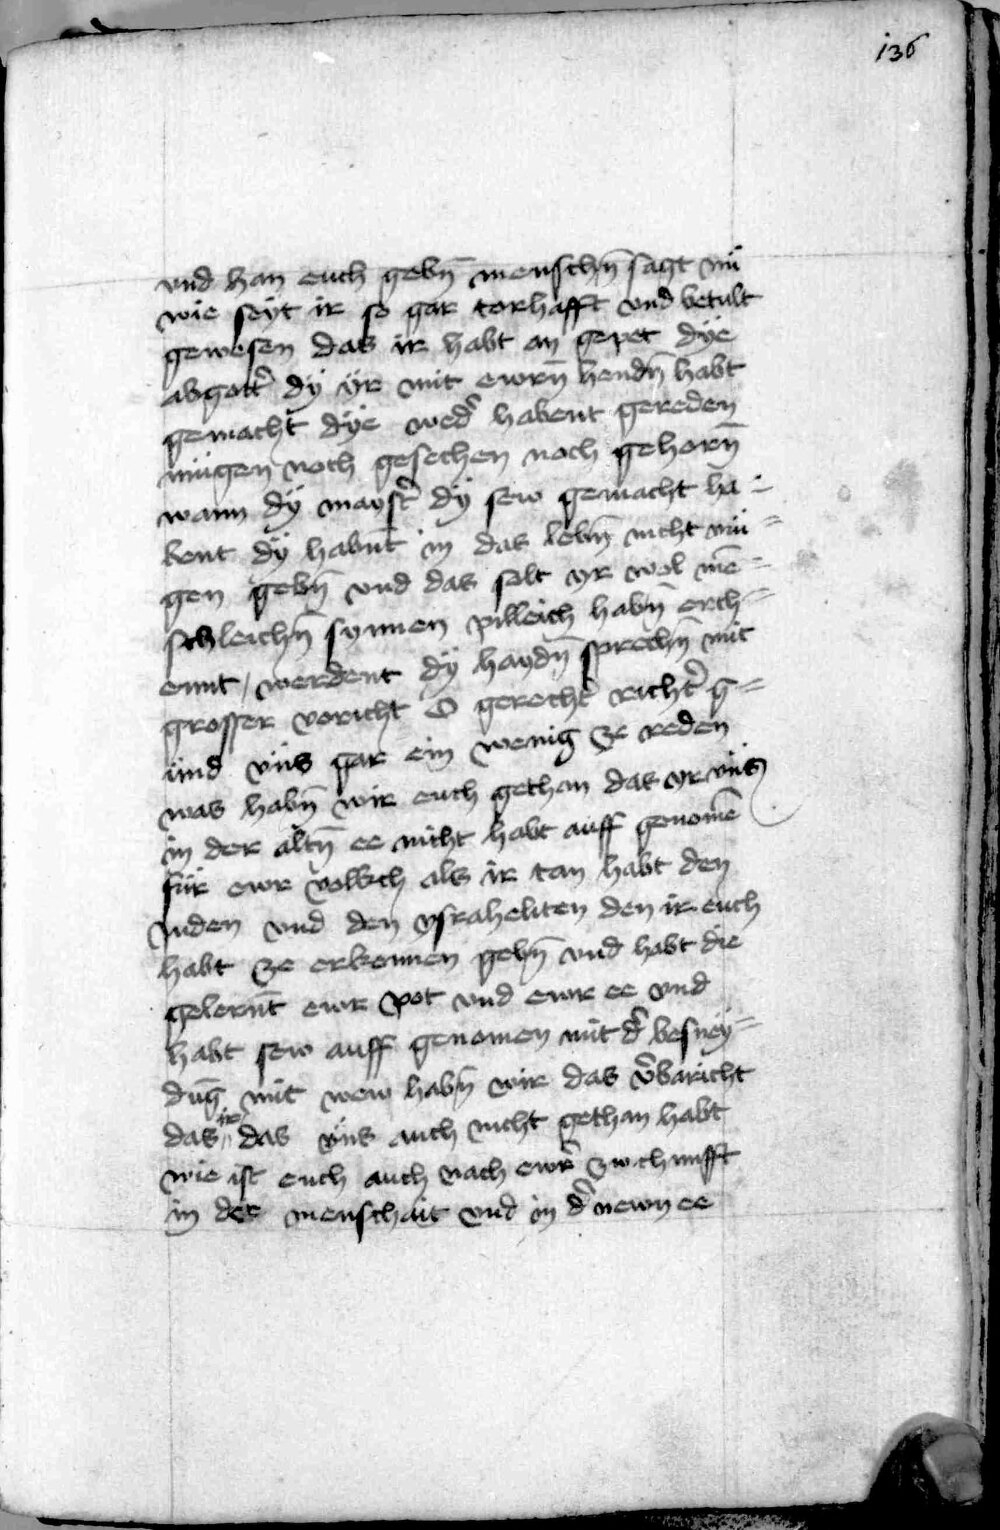 136
vnd han euch gebn̄ menschn̄ sagt nü
wie seyt ir so gar torhafft vnd betult
gewesen das ir habt an gepet dye
abgott̄ dÿ ÿr mit ewrn̄ hendn̄ habt
gemacht dÿe wed̄ habent gereden
mügen noch gesechen noch gehorn̄
wann dÿ mayst̄ dÿ sew gemacht ha =
bent dÿ habnt̄ in das lebn̄ nicht mü =
gen gebn̄ vnd das solt yr wol mē =
schleichn̄ synnen pilleich habn̄ erch =
ennt / werdent dÿ haydn̄ sprechn̄ mit
grosser voricht O gerecht̄ richt̄ g =
ünd vüs gar ein wenig ze reden
was habn̄ wir euch gethan das yr vüs
in der altn̄ ee nicht habt auff genomē
für ewr volkch als ir tan habt den
Juden vnd den ysraheliten den ir euch
habt ze erkennen gebn̄ vnd habt die
gelernt̄ ewr pot vnd ewr ee vnd
habt sew auff genomen mit d̄ besney =
dūg mit wew habn̄ wir das v̄baricht
das ir das vüs auch nicht gethan habt
wie ist euch auch nach ewr̄ zwchunfft
in der menschait vnd in d̄ newn ee